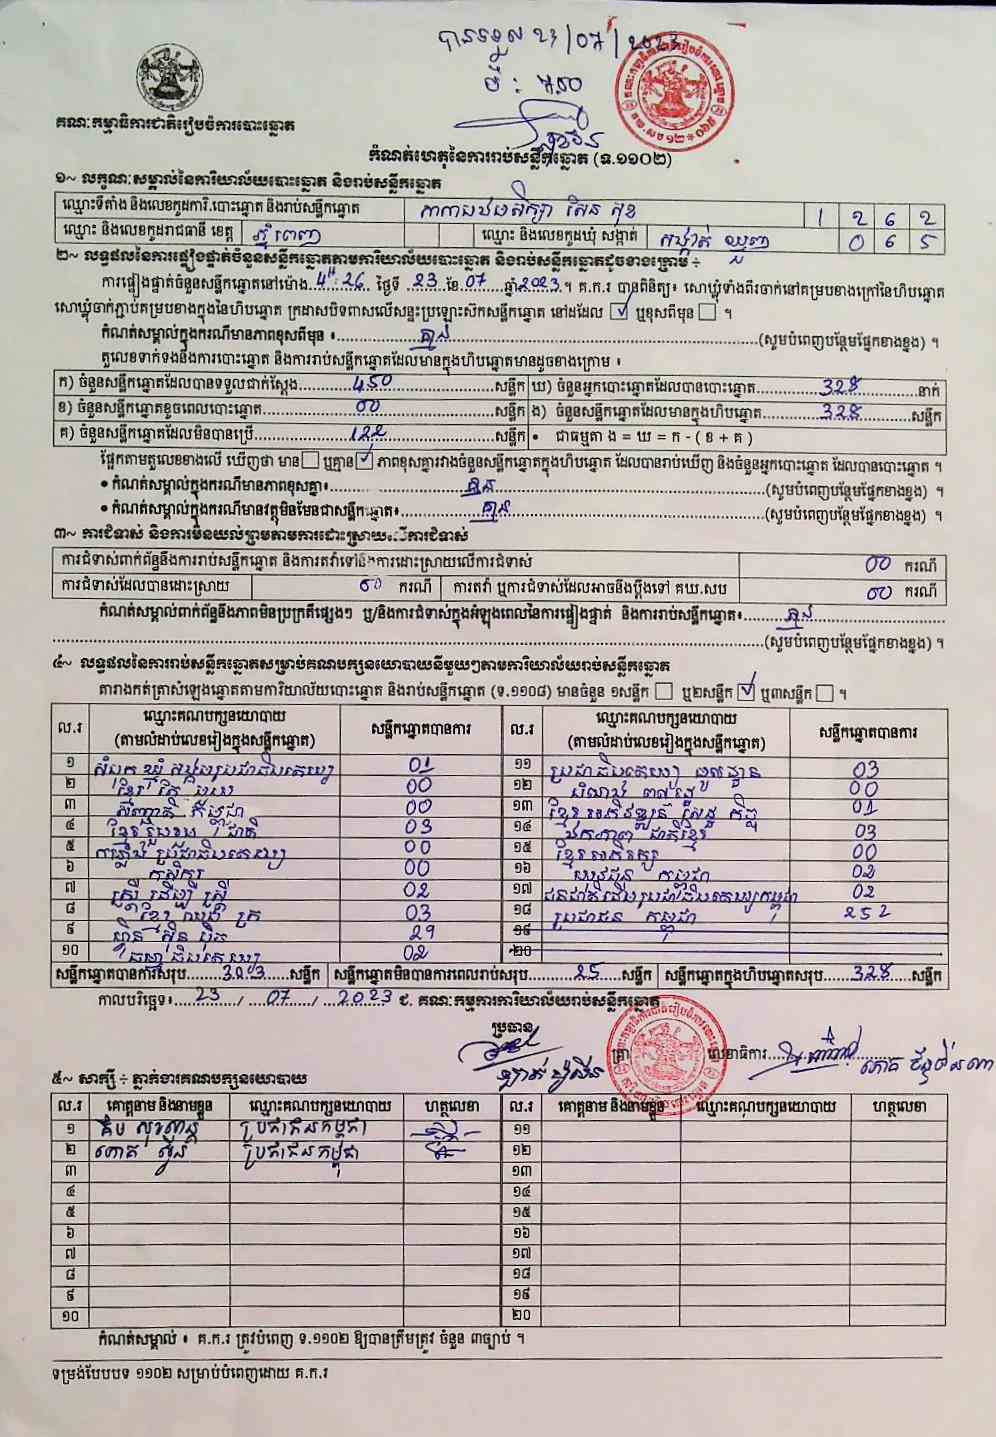 បានទទួល 23/07/2023
ម៉ : ៥:៥០
គណៈកម្មាធិការជាតិរៀបចំការបោះឆ្នោត
កំណត់ហេតុនៃការរាប់សន្លឹកឆ្នោត (ទ.១១០២)
១~ លក្ខណៈសម្គាល់នៃការិយាល័យបោះឆ្នោត និងរាប់សន្លឹកឆ្នោត
ឈ្មោះទីតាំង និងលេខកូដការិ.បោះឆ្នោត និងរាប់សន្លឹកឆ្នោត សិក្សា ហ៊ុន សុខ 1 2 6 2
ឈ្មោះ និងលេខកូដរាជធានី ខេត្ត ភ្នំពេញ ឈ្មោះ និងលេខកូដឃុំ សង្កាត់ សង្កាត់ 0 6 5
២~ លទ្ធផលនៃការផ្ទៀងផ្ទាត់ចំនួនសន្លឹកឆ្នោតតាមការិយាល័យបោះឆ្នោត និងរាប់សន្លឹកឆ្នោតដូចខាងក្រោម ÷
ការផ្ទៀងផ្ទាត់ចំនួនសន្លឹកឆ្នោតនៅម៉ោង 4H:26 ថ្ងៃទី 23 ខែ 07 ឆ្នាំ 2023 ។ គ.ក.រ បានពិនិត្យ៖ សោឃ្លុំទាំងពីរចាក់នៅគម្របខាងក្រៅនៃហិបឆ្នោត
សោឃ្លុំចាក់ភ្ជាប់គម្របខាងក្នុងនៃហិបឆ្នោត ក្រដាសបិទពាសលើសន្ទះប្រឡោះស៊កសន្លឹកឆ្នោត នៅដដែល ☑ ឬខុសពីមុន ☐ ។
កំណត់សម្គាល់ក្នុងករណីមានភាពខុសពីមុន ៖ គ្មាន (សូមបំពេញបន្ថែមផ្នែកខាងខ្នង) ។
តួលេខទាក់ទងនឹងការបោះឆ្នោត និងការរាប់សន្លឹកឆ្នោតដែលមានក្នុងហិបឆ្នោតមានដូចខាងក្រោម ៖
ក) ចំនួនសន្លឹកឆ្នោតដែលបានទទួលជាក់ស្តែង 450 សន្លឹក ឃ) ចំនួនអ្នកបោះឆ្នោតដែលបានបោះឆ្នោត 328 នាក់
ខ) ចំនួនសន្លឹកឆ្នោតខូចពេលបោះឆ្នោត 00 សន្លឹក ង) ចំនួនសន្លឹកឆ្នោតដែលមានក្នុងហិបឆ្នោត 328 សន្លឹក
គ) ចំនួនសន្លឹកឆ្នោតដែលមិនបានប្រើ 122 សន្លឹក • ជាធម្មតា ង = ឃ = ក - ( ខ + គ )
ផ្អែកតាមតួលេខខាងលើ ឃើញថា មាន ☐ ឬគ្មាន ☑ ភាពខុសគ្នារវាងចំនួនសន្លឹកឆ្នោតក្នុងហិបឆ្នោត ដែលបានរាប់ឃើញ និងចំនួនអ្នកបោះឆ្នោត ដែលបានបោះឆ្នោត ។
• កំណត់សម្គាល់ក្នុងករណីមានភាពខុសគ្នា៖ គ្មាន (សូមបំពេញបន្ថែមផ្នែកខាងខ្នង) ។
• កំណត់សម្គាល់ក្នុងករណីមានវត្ថុមិនមែនជាសន្លឹកឆ្នោត៖ គ្មាន (សូមបំពេញបន្ថែមផ្នែកខាងខ្នង) ។
៣~ ការជំទាស់ និងការមិនយល់ព្រមតាមការដោះស្រាយលើការជំទាស់
ការជំទាស់ពាក់ព័ន្ធនឹងការរាប់សន្លឹកឆ្នោត និងការតវ៉ាទៅនឹងការដោះស្រាយលើការជំទាស់ 00 ករណី
ការជំទាស់ដែលបានដោះស្រាយ 00 ករណី ការតវ៉ា ឬការជំទាស់ដែលអាចនឹងប្តឹងទៅ គឃ.សប 00 ករណី
កំណត់សម្គាល់ពាក់ព័ន្ធនឹងភាពមិនប្រក្រតីផ្សេងៗ ឬ/និងការជំទាស់ក្នុងអំឡុងពេលនៃការផ្ទៀងផ្ទាត់ និងការរាប់សន្លឹកឆ្នោត៖ គ្មាន
(សូមបំពេញបន្ថែមផ្នែកខាងខ្នង) ។
៤~ លទ្ធផលនៃការរាប់សន្លឹកឆ្នោតសម្រាប់គណបក្សនយោបាយនីមួយៗតាមការិយាល័យរាប់សន្លឹកឆ្នោត
តារាងកត់ត្រាសំឡេងឆ្នោតតាមការិយាល័យបោះឆ្នោត និងរាប់សន្លឹកឆ្នោត (ទ.១១០៨) មានចំនួន ១សន្លឹក ☐ ឬ២សន្លឹក ☑ ឬ៣សន្លឹក ☐ ។
ល.រ ឈ្មោះគណបក្សនយោបាយ (តាមលំដាប់លេខរៀងក្នុងសន្លឹកឆ្នោត) សន្លឹកឆ្នោតបានការ ល.រ ឈ្មោះគណបក្សនយោបាយ (តាមលំដាប់លេខរៀងក្នុងសន្លឹកឆ្នោត) សន្លឹកឆ្នោតបានការ
១ សំបុកឃ្មុំសង្គមប្រជាធិបតេយ្យ 01 ១១ ប្រជាធិបតេយ្យមូលដ្ឋាន 03
២ ខ្មែរ តែ មួយ 00 ១២ 00
៣ សញ្ជាតិ កម្ពុជា 00 ១៣ ខ្មែរអភិវឌ្ឍន៍សេដ្ឋកិច្ច 01
៤ ខ្មែររួបរួមជាតិ 03 ១៤ ឯកភាពជាតិខ្មែរ 03
៥ កម្លាំងប្រជាធិបតេយ្យ 00 ១៥ ខ្មែរអភិរក្ស 00
៦ កសិករ 00 ១៦ យុវជន កម្ពុជា 02
៧ ស្ត្រី ដើម្បី ស្ត្រី 02 ១៧ ជនជាតិដើមប្រជាធិបតេយ្យកម្ពុជា 02
៨ ខ្មែរ ឈប់ ក្រ 03 ១៨ ប្រជាជន កម្ពុជា 252
៩ ហ៊្វុនស៊ិនប៉ិច 29 ១៩
១០ ធម្មាធិបតេយ្យ 02 ២០
សន្លឹកឆ្នោតបានការសរុប 303 សន្លឹក សន្លឹកឆ្នោតមិនបានការពេលរាប់សរុប 25 សន្លឹក សន្លឹកឆ្នោតក្នុងហិបឆ្នោតសរុប 328 សន្លឹក
កាលបរិច្ឆេទ៖ 23 / 07 / 2023 ជ. គណៈកម្មការការិយាល័យរាប់សន្លឹកឆ្នោត
ប្រធាន
លេខាធិការ
៥~ សាក្សី ÷ ភ្នាក់ងារគណបក្សនយោបាយ
ល.រ គោត្តនាម និងនាមខ្លួន ឈ្មោះគណបក្សនយោបាយ ហត្ថលេខា ល.រ គោត្តនាម និងនាមខ្លួន ឈ្មោះគណបក្សនយោបាយ ហត្ថលេខា
១ ប្រជាជនកម្ពុជា ១១
២ ប្រជាជនកម្ពុជា ១២
៣ ១៣
៤ ១៤
៥ ១៥
៦ ១៦
៧ ១៧
៨ ១៨
៩ ១៩
១០ ២០
កំណត់សម្គាល់ ៖ គ.ក.រ ត្រូវបំពេញ ទ.១១០២ ឱ្យបានត្រឹមត្រូវ ចំនួន ៣ច្បាប់ ។
ទម្រង់បែបបទ ១១០២ សម្រាប់បំពេញដោយ គ.ក.រ